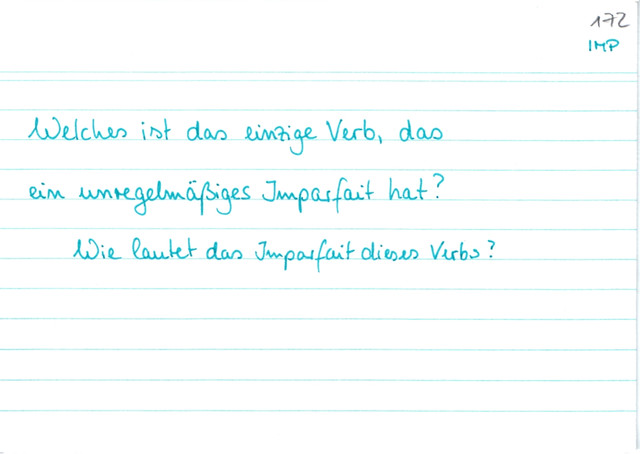 172
IMP
Welches ist das einzige Verb, das
ein unregelmäßiges Imparfait hat?
Wie lautet das Imparfait dieses Verbs?